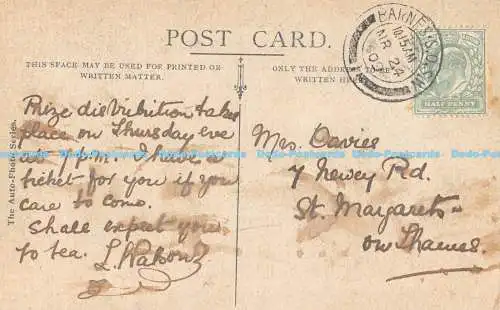 POST CARD.
THIS SPACE MAY BE USED FOR PRINTED OR
WRITTEN MATTER.
ONLY THE ADDRESS TO BE
WRITTEN HERE
HALF PENNY
The Auto-Photo Series.
Prize distribution takes
place on Thursday eve
at p.m. I have a
ticket for you if you
care to come.
Shall expect you
to tea. L.
Mrs. Davies
7 Newey Rd.
St. Margarets
on Thames.